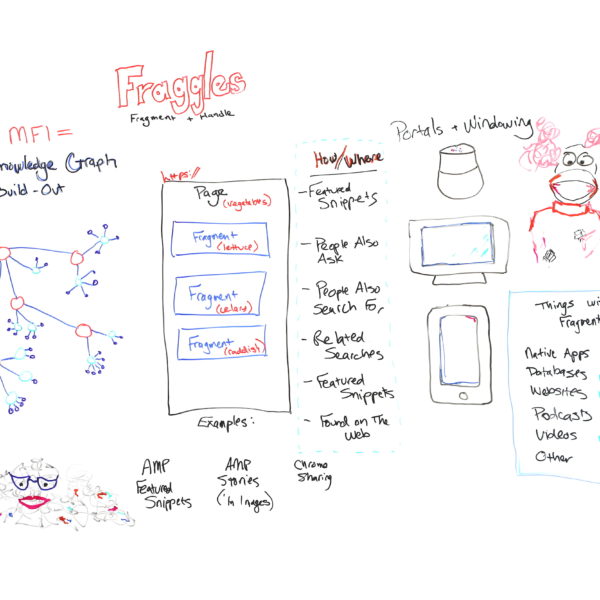 Fraggles
Fragment + Handle
MFI =
nowledge Graph
Build-Out
https://
Page
(vegetables)
Fragment
(lettuce)
Fragment
(celery)
Fragment
(raddish)
Examples:
AMP
Featured
Snippets
AMP
Stories
(in Images)
Chrome
Sharing
How//Where
- Featured
Snippets
- People Also
Ask
- People Also
Search For
- Related
Searches
- Featured
Snippets
- Found on The
Web
Portals + Windowing
Things wi
Fragment
Native Apps
Databases
Websites
Podcasts
Videos
Other